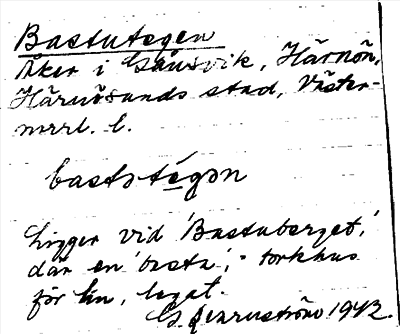 Bastutegen
Åker i Gånsvik, Härnön,
Härnösands stad, Väster-
norrl. l.
bastətégən
Ligger vid 'Bastuberget,'
där en 'basta', - torkhus
för lin, legat.
G. Jernström 1942.